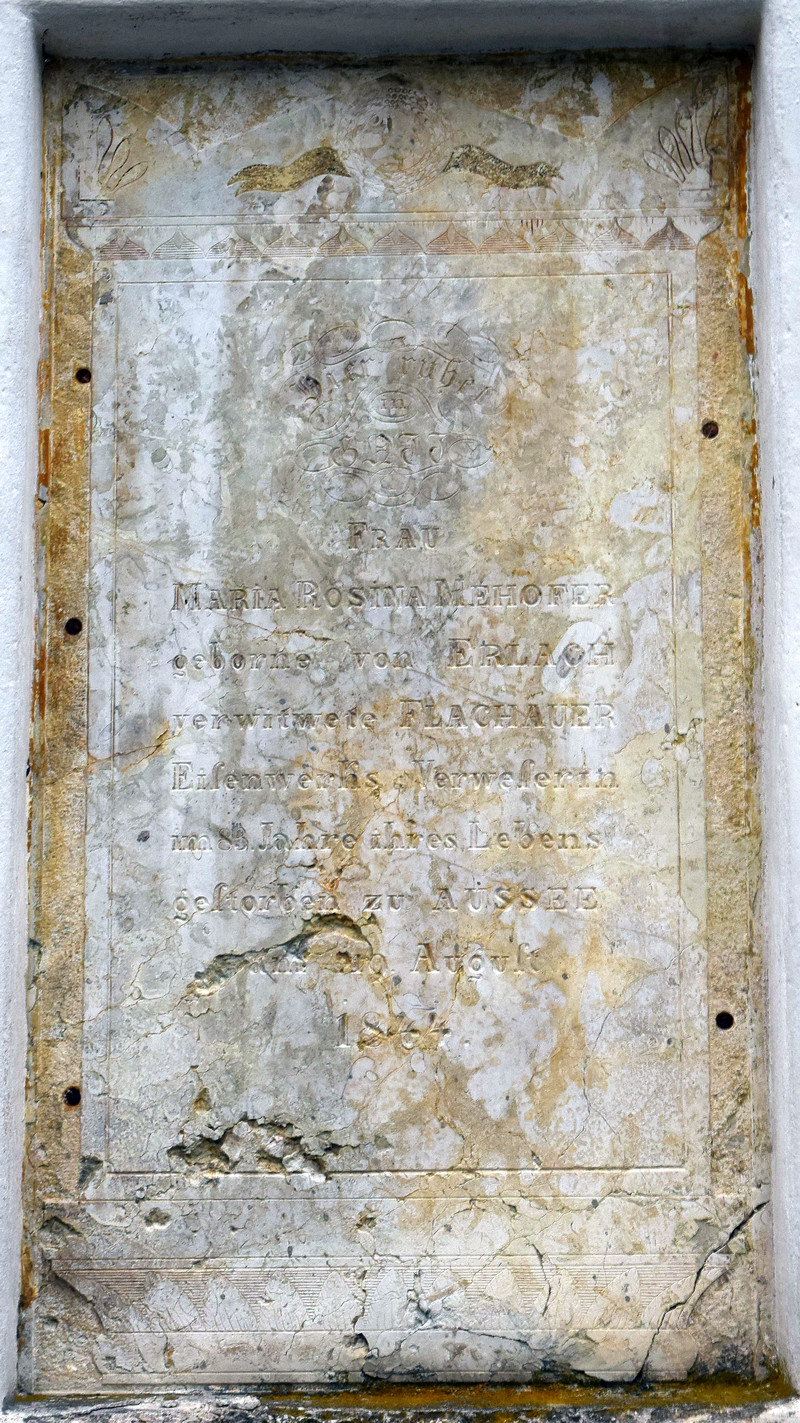 Hier ruhet
in
GOTT
FRAU
MARIA ROSINA MEHOFER
geborne von ERLACH
verwitwete FLACHAUER
Eiſenwerks Verweſerin
im 83 Jahre ihres Lebens
geſtorben zu AUSSEE
am August
1844.